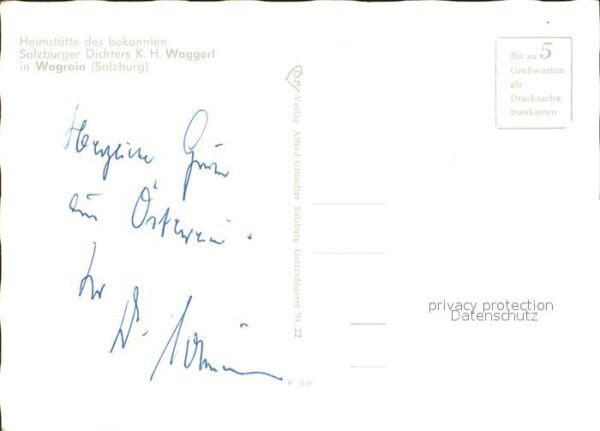 Heimstätte des bekannten
Salzburger Dichters K. H. Waggerl
in Wagrain (Salzburg)
Bis zu 5
Grußworten
als
Drucksache
frankieren
Herzliche Grüße
aus Österreich.
Ihr
Dr.
Verlag Alfred Gründler Salzburg Getreidegasse Nr. 22
privacy protection
Datenschutz